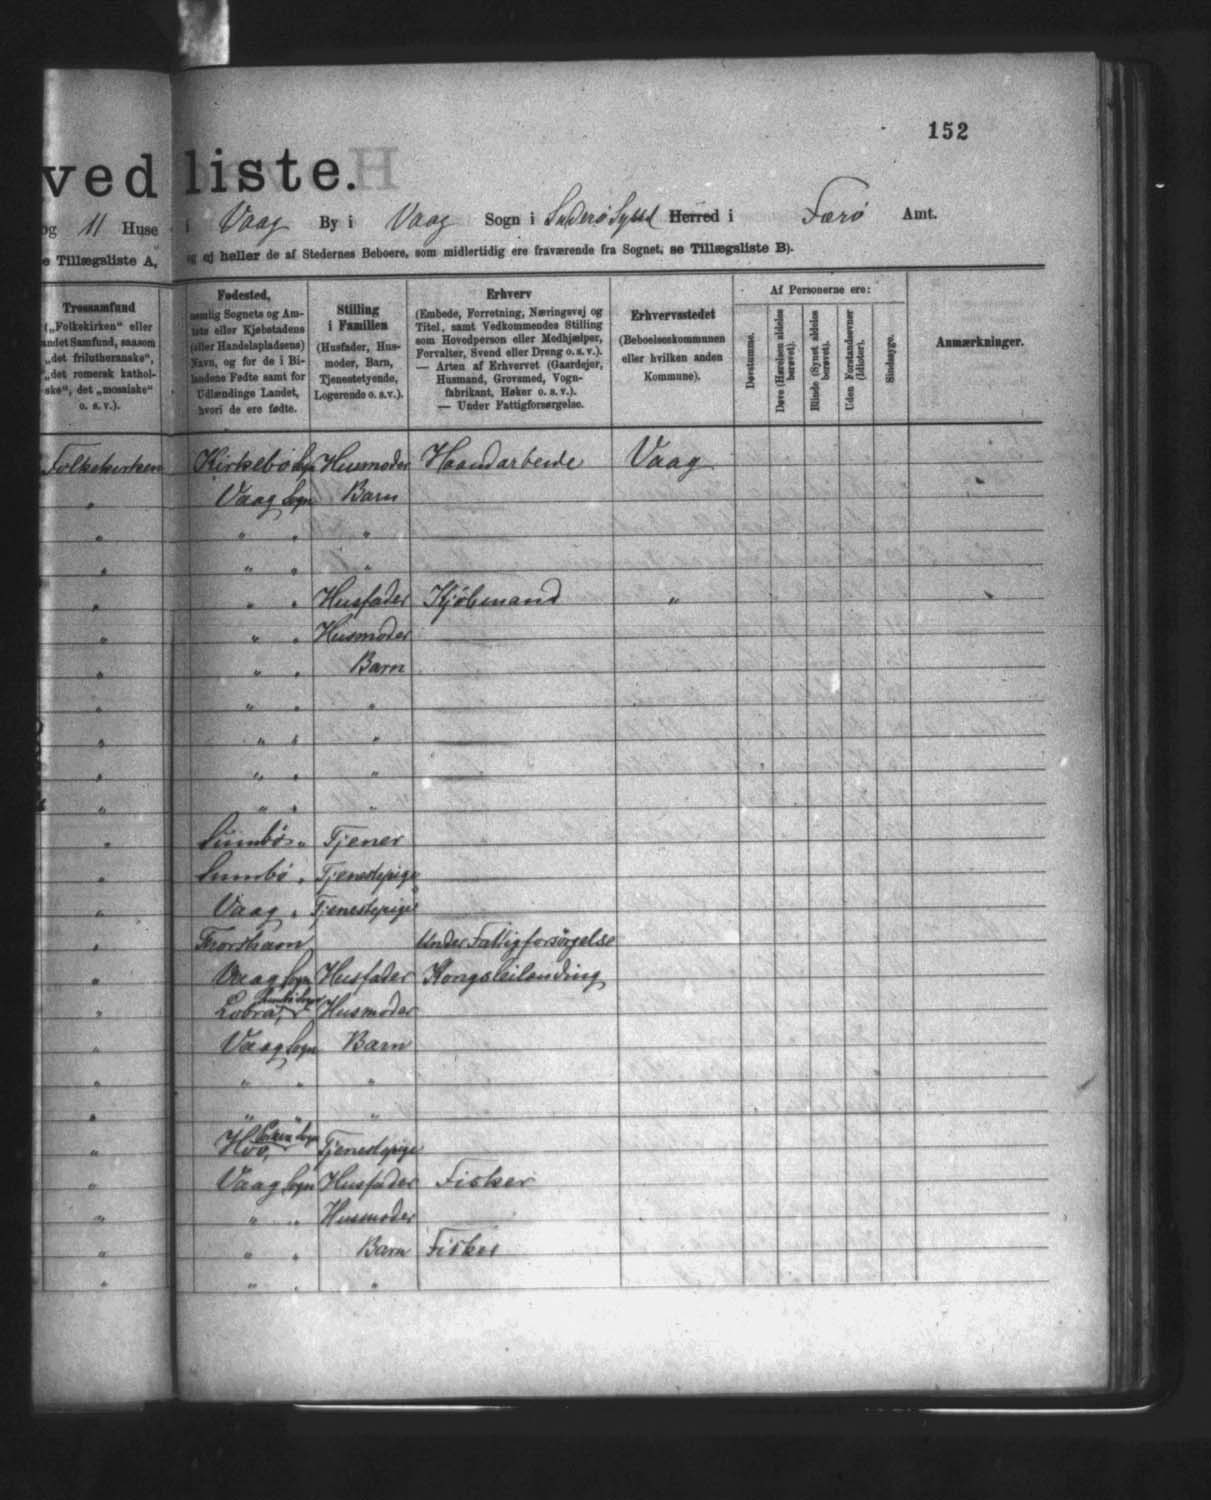 152
vedliste.
og 11 Huse i Vaag By i Vaag Sogn i Suderø Syssel Herred i Færø Amt.
e Tillægsliste A, og ej heller de af Stedernes Beboere, som midlertidig ere fraværende fra Sognet, se Tillægsliste B).
Trossamfund
(„Folkekirken“ eller
andet Samfund, saasom
„det frilutheranske“,
„det romersk kathol-
ske“, det „mosaiske“
o. s. v.).
Fødested,
nemlig Sognets og Am-
tets eller Kjøbstadens
(eller Handelspladsens)
Navn, og for de i Bi-
landene Fødte samt for
Udlændinge Landet,
hvori de ere fødte.
Stilling
i Familien
(Husfader, Hus-
moder, Barn,
Tjenestetyende,
Logerende o. s. v.).
Erhverv
(Embede, Forretning, Næringsvej og
Titel, samt Vedkommendes Stilling
som Hovedperson eller Medhjælper,
Forvalter, Svend eller Dreng o. s. v.).
— Arten af Erhvervet (Gaardejer,
Husmand, Grovsmed, Vogn-
fabrikant, Høker o. s. v.).
— Under Fattigforsørgelse.
Erhvervsstedet
(Beboelseskommunen
eller hvilken anden
Kommune).
Af Personerne ere:
Døvstumme.
Døve (Hørelsen aldeles
berøvet).
Blinde (Synet aldeles
berøvet).
Uden Forstandsevner
(Idioter).
Sindssyge.
Anmærkninger.
Folkekirken Kirkebø Sogn Husmoder Haandarbeide Vaag
" Vaag Sogn Barn
" " " "
" " " "
" " " Husfader Kjøbmand "
" " " Husmoder
" " " Barn
" " " "
" " " "
" " " "
" " " "
" Sumbø " Tjener
" Sumbø " Tjenestepige
" Vaag " Tjenestepige
" Thorshavn Under Fattigforsørgelse
" Vaag Sogn Husfader
" Sumbø Sogn Husmoder
" Vaag Sogn Barn
" " " "
" " " "
" Hvo, Sogn Tjenestepige
" Vaag Sogn Husfader Fisker
" " " Husmoder
" " " Barn Fisker
" " " "